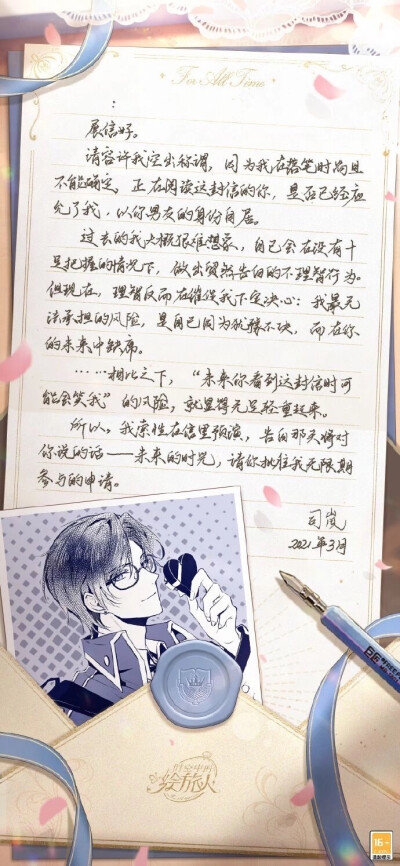 For All Time
：
展信好。
请容许我空出称谓，因为我在落笔时尚且
不能确定，正在阅读这封信的你，是否已经应
允了我，以你男友的身份自居。
过去的我大概很难想象，自己会在没有十
足把握的情况下，做出贸然告白的不理智行为。
但现在，理智反而在催促我下定决心：我最无
法承担的风险，是自己因为犹豫不决，而在你
的未来中缺席。
……相比之下，“未来你看到这封信时可
能会笑我”的风险，就显得无足轻重起来。
所以，我索性在信里预演，告白那天将对
你说的话——未来的时光，请你批准我无限期
参与的申请。
司岚
2021年3月
时空中的
绘旅人
16+